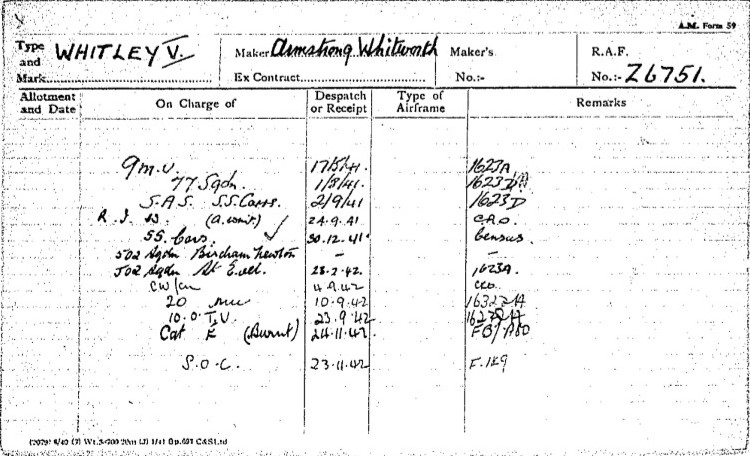 A.M. Form 59
Type and Mark WHITLEY V. Maker Armstrong Whitworth Maker's No.:- R.A.F. No.:- Z6751.
Ex Contract
Allotment and Date On Charge of Despatch or Receipt Type of Airframe Remarks
9 m.u. 17/5/41. 1623A
77 Sqdn. 1/8/41.
S.A.S. S.S. Cars. 2/9/41 1623D
R.I.W. (a.wnit.) 24.9.41 C.R.O.
SS. Cars. ✓ 30.12.41. Census.
502 Sqdn Bircham Newton — —
502 Sqdn St Eval. 28.2.42. 1623A.
CW/Cn 4.9.42
20 mu 10.9.42
10.O.T.U. 23.9.42
Cat E (Burnt) 24.11.42
S.O.C. 23.11.42 F.1K9
8/40 1/41 C&S Ltd